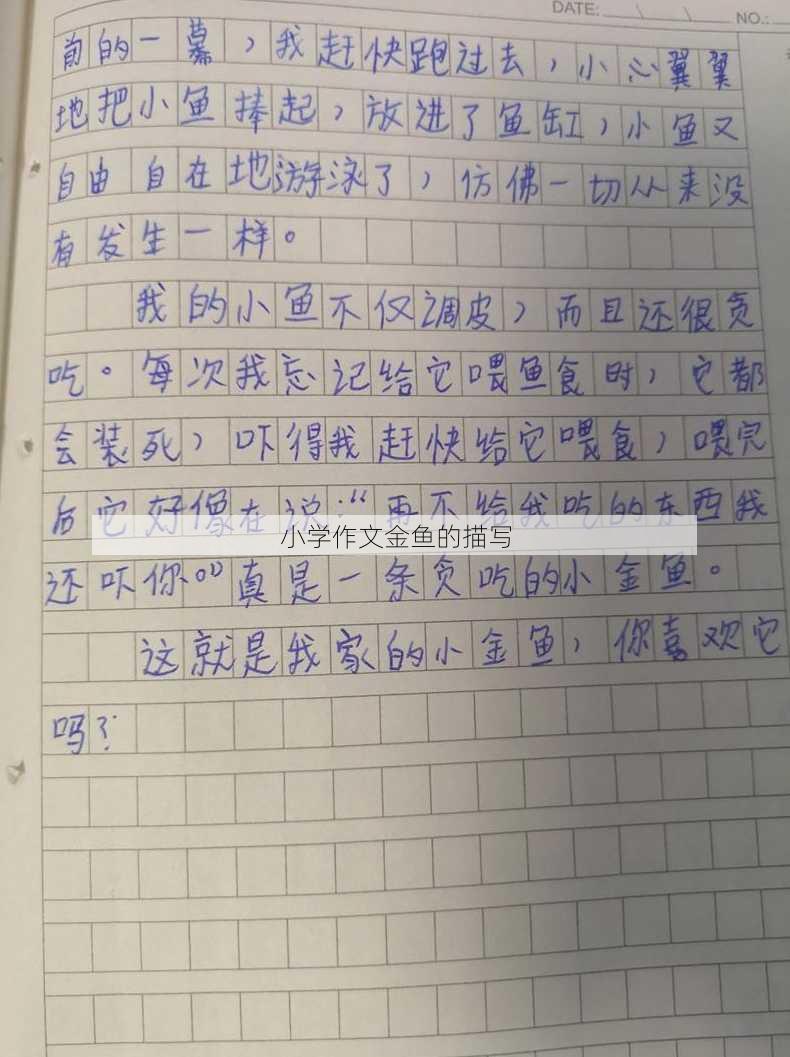 DATE:
NO.:
前的一幕，我赶快跑过去，小心翼翼
地把小鱼捧起，放进了鱼缸，小鱼又
自由自在地游泳了，仿佛一切从来没
有发生一样。
我的小鱼不仅调皮，而且还很贪
吃。每次我忘记给它喂鱼食时，它都
会装死，吓得我赶快给它喂食，喂完
后它好像在说：“再不给我吃的东西我
小学作文金鱼的描写
还吓你。”真是一条贪吃的小金鱼。
这就是我家的小金鱼，你喜欢它
吗？